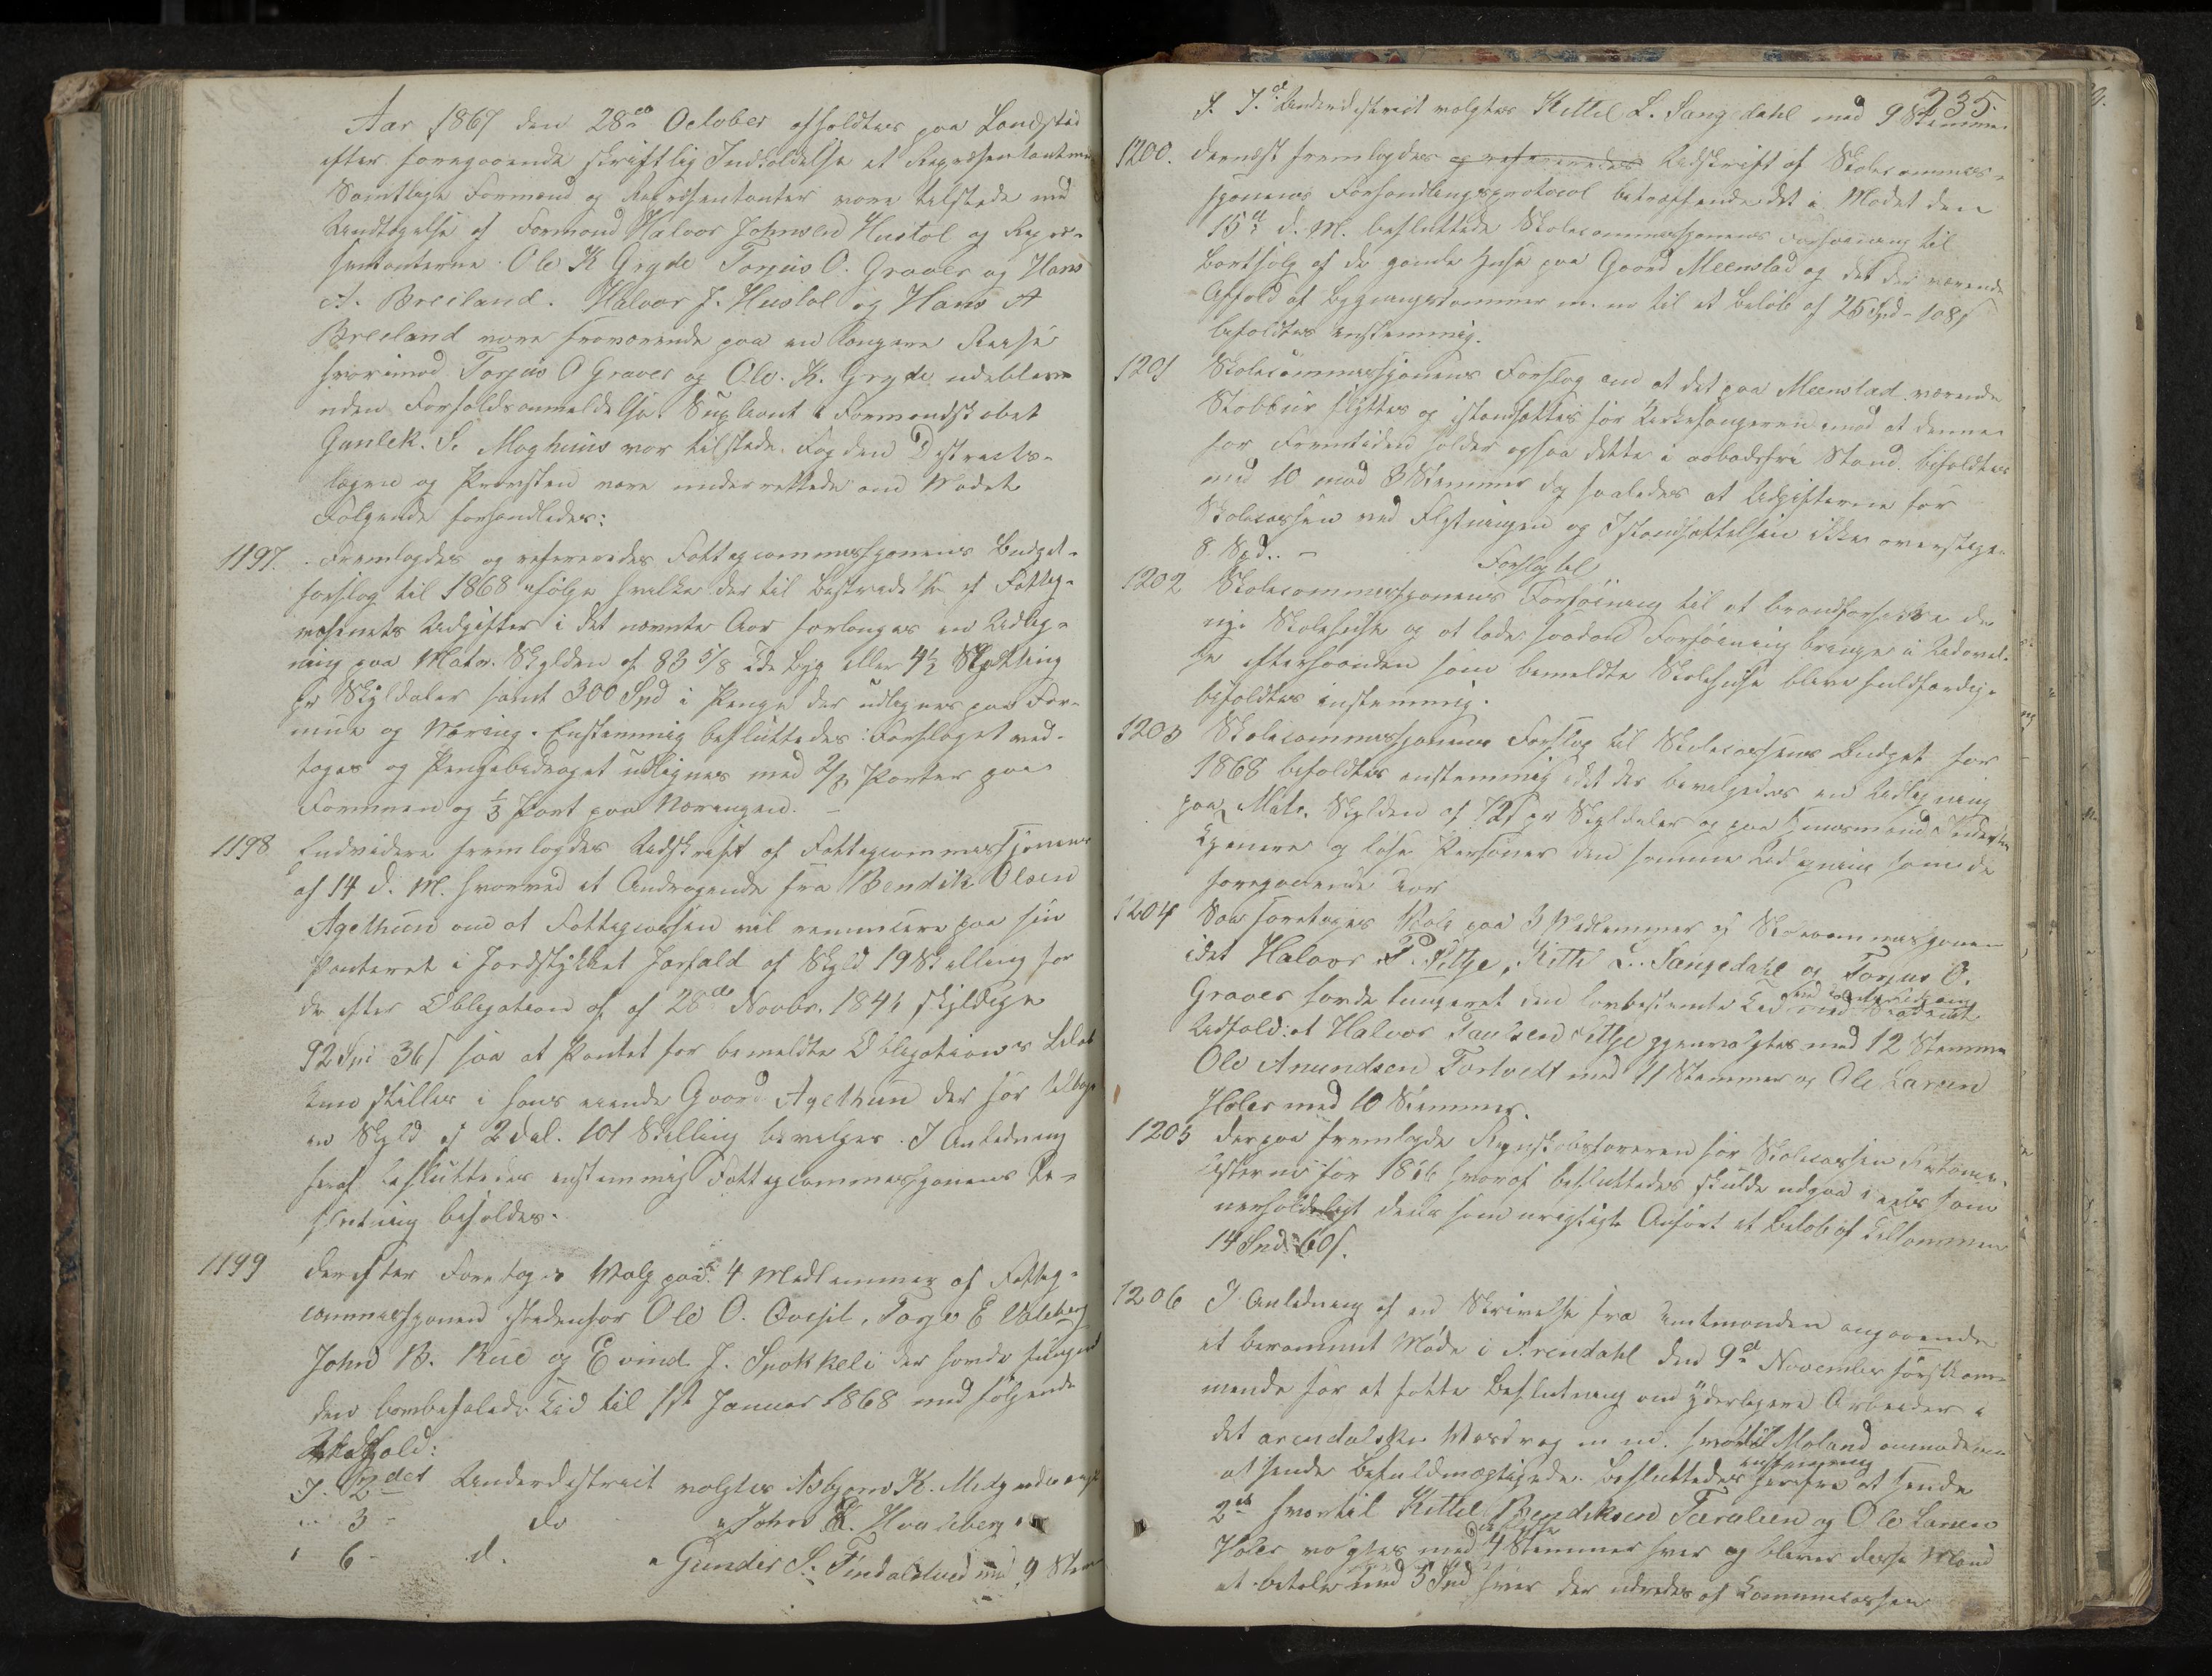 Aar 1867 den 28de October afholdtes paa Landstad
efter foregaaende skriftlig Indkaldelse et Repræsentantmøde
Samtlige Formænd og Repræsentanter vare tilstede med
Undtagelse af Formand Halvor Johnsen Hustol og Repræ-
sentanterne Ole K Gryde Torjus O. Graver og Hans
A. Breiland. Halvor J. Hustol og Hans A
Breiland vare fraværende paa en længere Reise
hvorimod Torjus O Graver og Ole K. Gryde udebleve
uden Forfaldsanmeldelse. Supleant i Formandskabet
Gunlek. S. Moghuus var tilstede. Fogden Districts-
lægen og Provsten vare underrettede om Mødet
Følgende forhandledes:
1197. Fremlagdes og refereredes Fattigcommissjonens Budget-
forslag til 1868 ifølge hvilke der til Bestridelse af Fattig-
væsenets Udgifter i det nævnte Aar forlanges en Udlig-
ning paa Matr. Skylden af 83 5/8 Tde Byg eller 4½ Skilling
pr Skyldaler samt 300 Spd i Penge der udlignes paa For-
mue og Næring. Enstemmig besluttedes: Forslaget ved-
tages og Pengebidraget udlignes med 2/3 Parter paa
Formuen og 1/3 Part paa Næringen. –
1198 Endvidere fremlagdes Udskrift af Fattigcommissjonens
af 14 d. M. hvorved et Andragende fra Bendik Olsen
Agethun om at Fattigcassen vil renuncere paa sin
Panteret i Jordstykket Jorfald af Skyld 19 Skilling for
de efter Obligation af 28de Novbr. 184 skyldige
92 Spd 36 s saa at Pantet for bemeldte Obligations Beløb
kun stilles i hans eiende Gaard Agethun der har tilbage
en Skyld af 2 Dal. 101 Skilling bevilges. I Anledning
heraf besluttedes enstemmig Fattigcommissjonens Be-
slutning bifaldes.
1199 Derefter Foretoges Valg paa 4 Medlemmer af Fattig-
commissjonen istedenfor Ole O. Qvesjil, Torje E Valeberg
John B. Rue og Evind J. Snokkeli der havde fungeret
den lovbefalede Tid til 1ste Januar 1868 med følgende
Udfald:
I. 2det Underdistrict valgtes Asbjørn K.
" 3 - do " John K. Hvaleberg "
" 6 - d. " Gunder S. Tindalslied med 9 Stem
235.
I. 7de Underdistrict valgtes Kittel L. Sangedahl med 9 Stemmer
1200. Dernæst fremlagdes og refereredes Udskrift af Skolecommis-
sjonens Forhandlingsprotocol betræffende det i Mødet den
15de d. M. besluttede Skolecommissjonens Forføining til
Bortsalg af de gamle Huse paa Gaard Meenstad og det der værende
Affald af Bygningstømmer m. m til et Beløb af 25 Spd - 108 s
bifaldtes enstemmig.
1201 Skolecommissjonens Forslag om at det paa Meenstad værende
Stabbur flyttes og istandsættes for Kirkesangeren imod at denne
for Fremtiden holder ogsaa dette i aabodsfri Stand bifaldtes
med 10 mod 3 Stemmer dog saaledes at Udgifterne for
Skolecassen ved Flytningen og Istandsættelsen ikke overstige
8 Spd. –
Forslag til
1202 Skolecommissjonens Forføining til at brandforsikre de
nye Skolehuse og at lade saadan Forføining bringes i Udøvel-
se efterhaanden som bemeldte Skolehuse blive fuldfærdige
bifaldtes enstemmig.
1203 Skolecommissjonens Forslag til Skolecassens Budget for
1868 bifaldtes enstemmig idet der bevilgedes en Udligning
paa Matr. Skylden af 12 s pr Skyldaler og paa Huusmænd Inderster
Tjenere og løse Personer den samme Udligning som de
foregaaende Aar
1204 Saa foretoges Valg paa 3 Medlemmer af Skolecommissjonen
idet Halvor P. Kittje, Kittel L. Sangedahl og Torjus O.
Graver havde fungeret den lovbestemte Tid med saadant
Udfald: at Halvor Paulsen Kittje gjenvalgtes med 12 Stemmer
Ole Anundsen Tortvedt med 11 Stemmer og Ole Larsen
Holer med 10 Stemmer.
1205 Derpaa fremlagde Regnskabsføreren for Skolecassen Restance-
listerne for 1866 hvoraf besluttedes skulde udgaa dels som
uerholdeligt dels som urigtigt Anført et Beløb af tilsammen
14 Spd 60 s.
1206 I Anledning af en Skrivelse fra Amtmanden angaaende
et berammet Møde i Arendahl den 9de November førstkom-
mende for at fatte Beslutning om yderligere Arbeider i
det arendalske Vasdrag m m. hvortil Moland anmodes om
at sende Befuldmægtigede. Besluttedes enstemmig herfra at sende
2de hvortil Kittel Bendiksen Tveralien og Ole Larsen
Holer valgtes med 4 Stemmer hver og bliver disse Mænd
at betale med 5 Spd hver der udredes af Communecassen